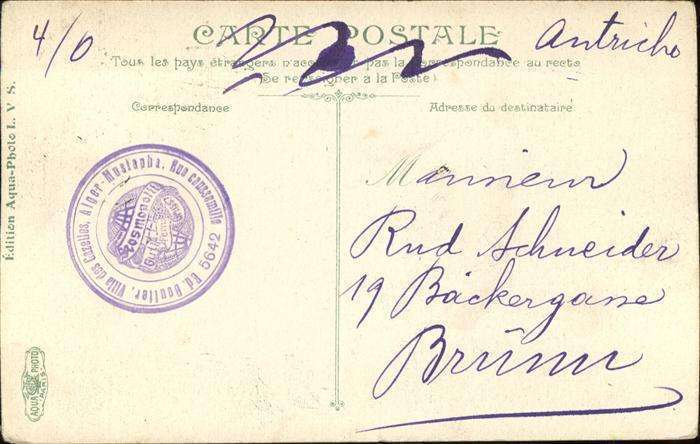 4/0
Autriche
CARTE POSTALE
Tous les pays étrangers n'acceptent pas la correspondance au recto
(Se renseigner à la Poste)
Correspondance
Adresse du destinataire
Monsieur
Rud Schneider
19 Bäckergasse
Brünn
Édition Aqua-Photo L. V. S.
Ed. Boulter, Villa des Gazelles, Alger-Mustapha, Rue
5642
Cosmopolit
AQUA PHOTO
PARIS